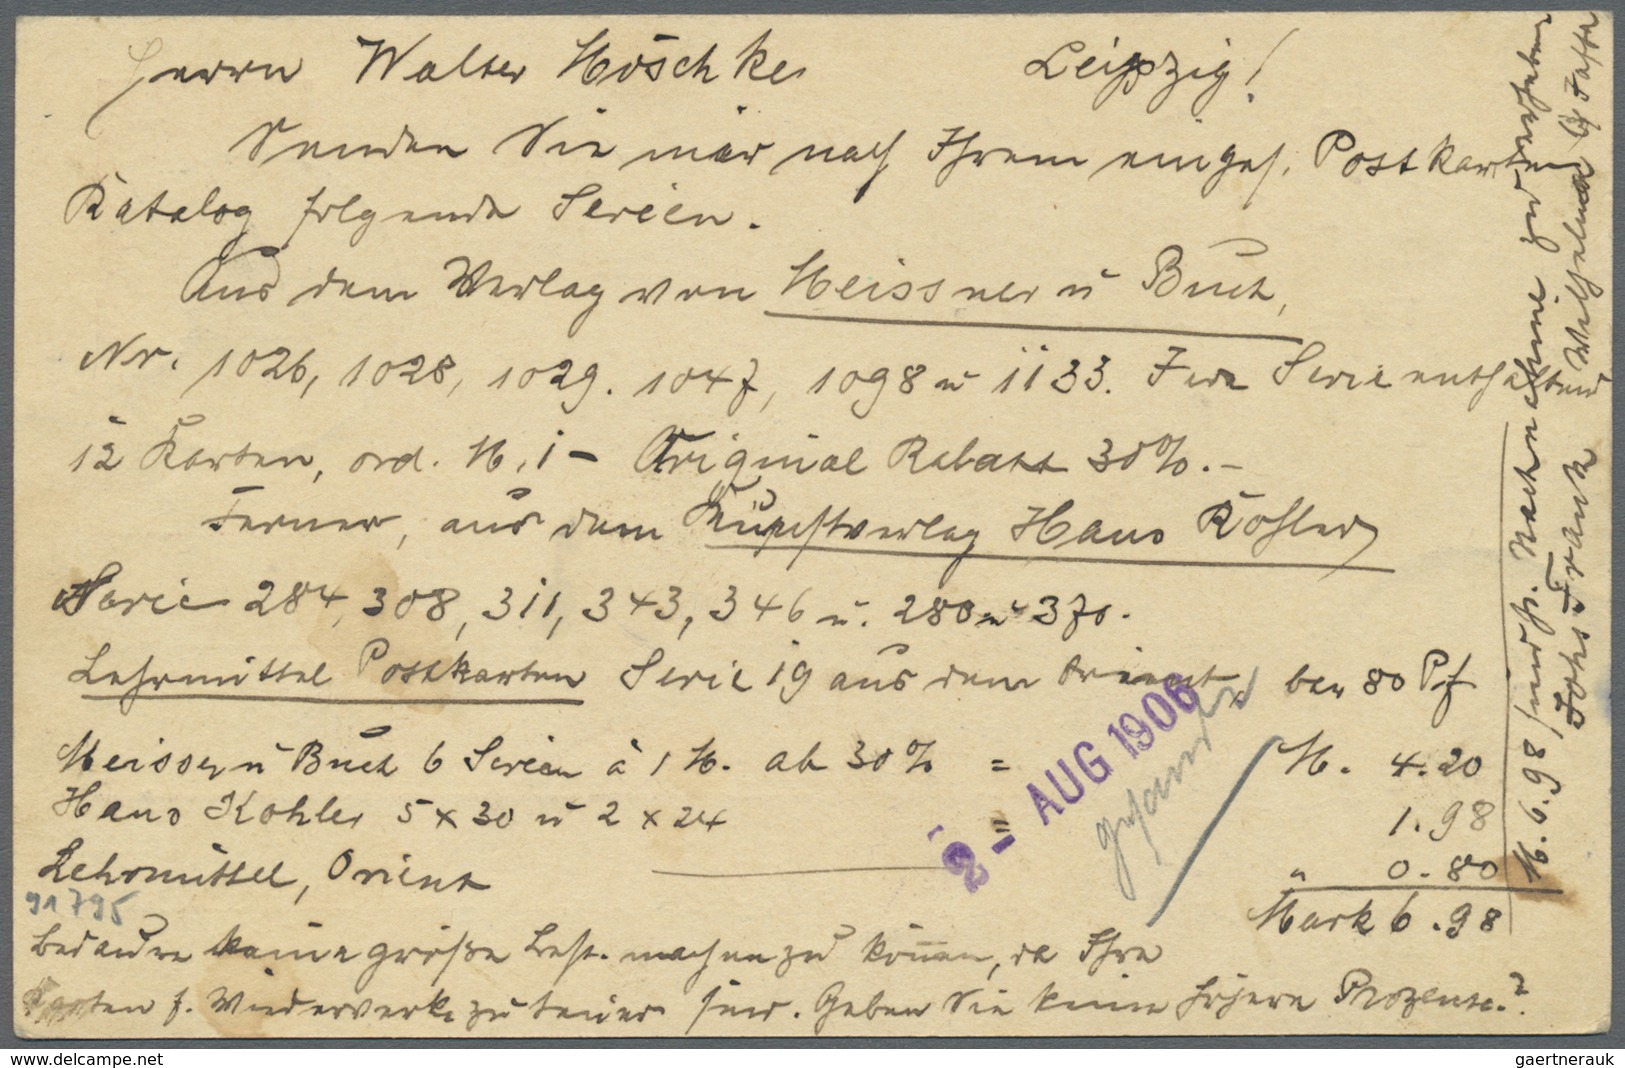 Herrn Walter Höschke, Leipzig!
Senden Sie mir nach Ihrem einges. Postkarten
Katalog folgende Serien.
Aus dem Verlag von Meissner u Buch,
Nr. 1026, 1028, 1029. 1047, 1098 u 1133. Jede Serie enthaltend
12 Karten, ord. M. 1 – Original Rabatt 30%. –
Ferner, aus dem Kunstverlag Hans Köhler
Serie 284, 308, 311, 343, 346 u. 280 u 370.
Lehrmittel Postkarten Serie 19 aus dem Orient, bar 80 Pf
Meissner u Buch 6 Serien à 1 M. ab 30% = M. 4.20
Hans Kohler 5 x 30 u 2 x 24 = 1.98
Lehrmittel, Orient " 0.80
Mark 6.98
91795
Bedaure keine größre Best. machen zu können, da Ihre
Karten f. Wiederverk. zu teuer sind. Geben Sie keine höhere Prozente.?
M. 6.98 sind p. Nachnahme zu erheben
Johs. Frank Wilhelma b/ Jaffa
2 - AUG 1906
gesandt
delcampe.net
gaertnerauk